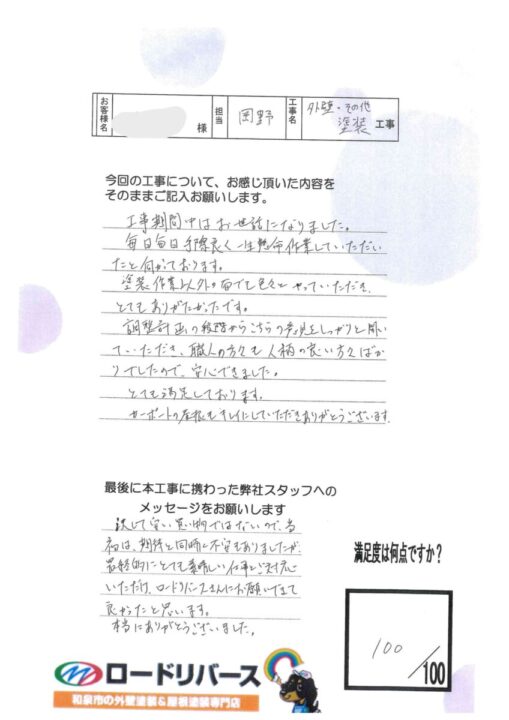 お客様名 様 担当 岡野 工事名 外壁・その他 塗装 工事
今回の工事について、お感じ頂いた内容を
そのままご記入お願いします。
工事期間中はお世話になりました。
毎日毎日手際良く一生懸命作業していただい
たと伺っております。
塗装作業以外の面でも色々とやっていただき、
とてもありがたかったです。
調整計画の段階からこちらの意見をしっかりと聞い
ていただき、職人の方々も人柄の良い方々ばか
りでしたので、安心できました。
とても満足しております。
カーポートの屋根もキレイにしていただきありがとうございます。
最後に本工事に携わった弊社スタッフへの
メッセージをお願いします
決して安い買い物ではないので、当
初は、期待と同時に不安もありましたが、
最終的にとても素晴しい仕事とご対応
いただけ、ロードリバースさんにお願いできて
良かったと思います。
本当にありがとうございました。
満足度は何点ですか?
100
/100
ロードリバース
和泉市の外壁塗装&屋根塗装専門店